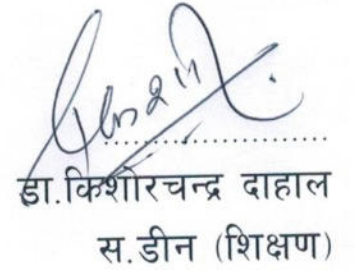 डा.किशोरचन्द्र दाहाल
स.डीन (शिक्षण)